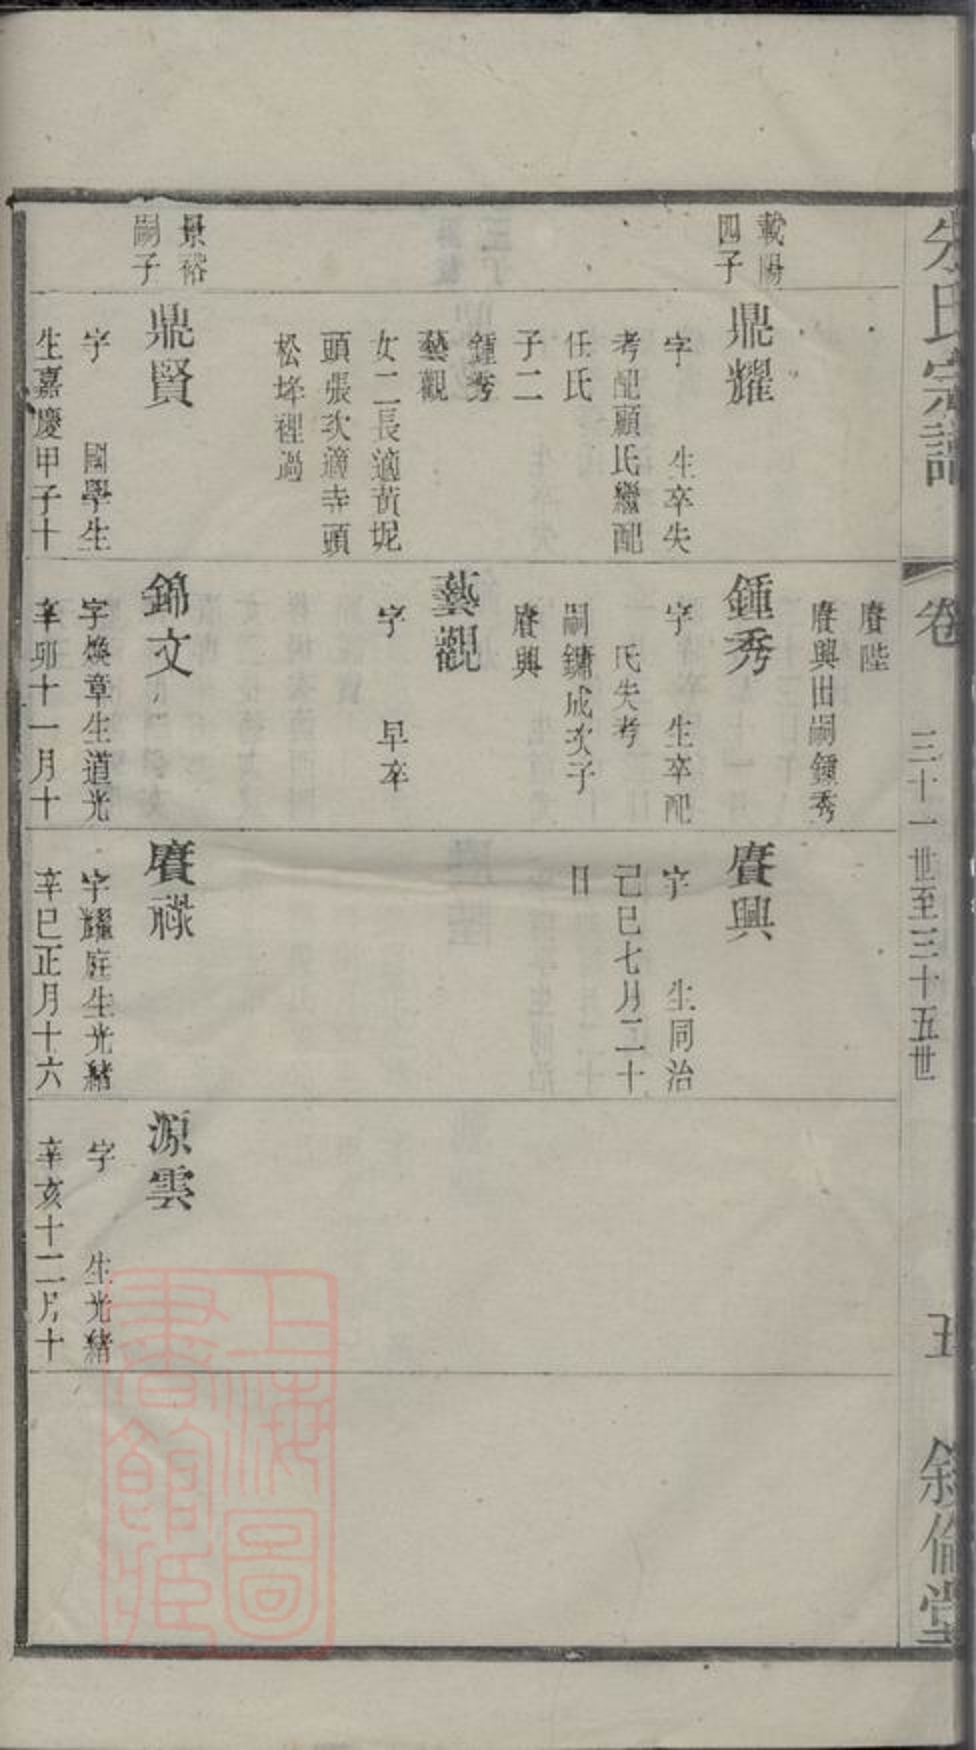 朱氏宗譜
卷
三十一世至三十五世
五
敘倫堂
載陽
四子
鼎耀
字 生卒失
考配顧氏繼配
任氏
子二
鍾秀
藝觀
女二長適黃坭
頭張次適寺頭
松埄裡過
景裕
嗣子
鼎賢
字 國學生
生嘉慶甲子十
賡陛
賡興出嗣鍾秀
鍾秀
字 生卒配
氏失考
嗣鏞成次子
賡興
藝觀
字 早卒
錦文
字煥章生道光
辛卯十一月十
賡興
字 生同治
己巳七月二十
日
賡祿
字耀庭生光緒
辛巳正月十六
源雲
字 生光緒
辛亥十二月十
上海圖
書館藏